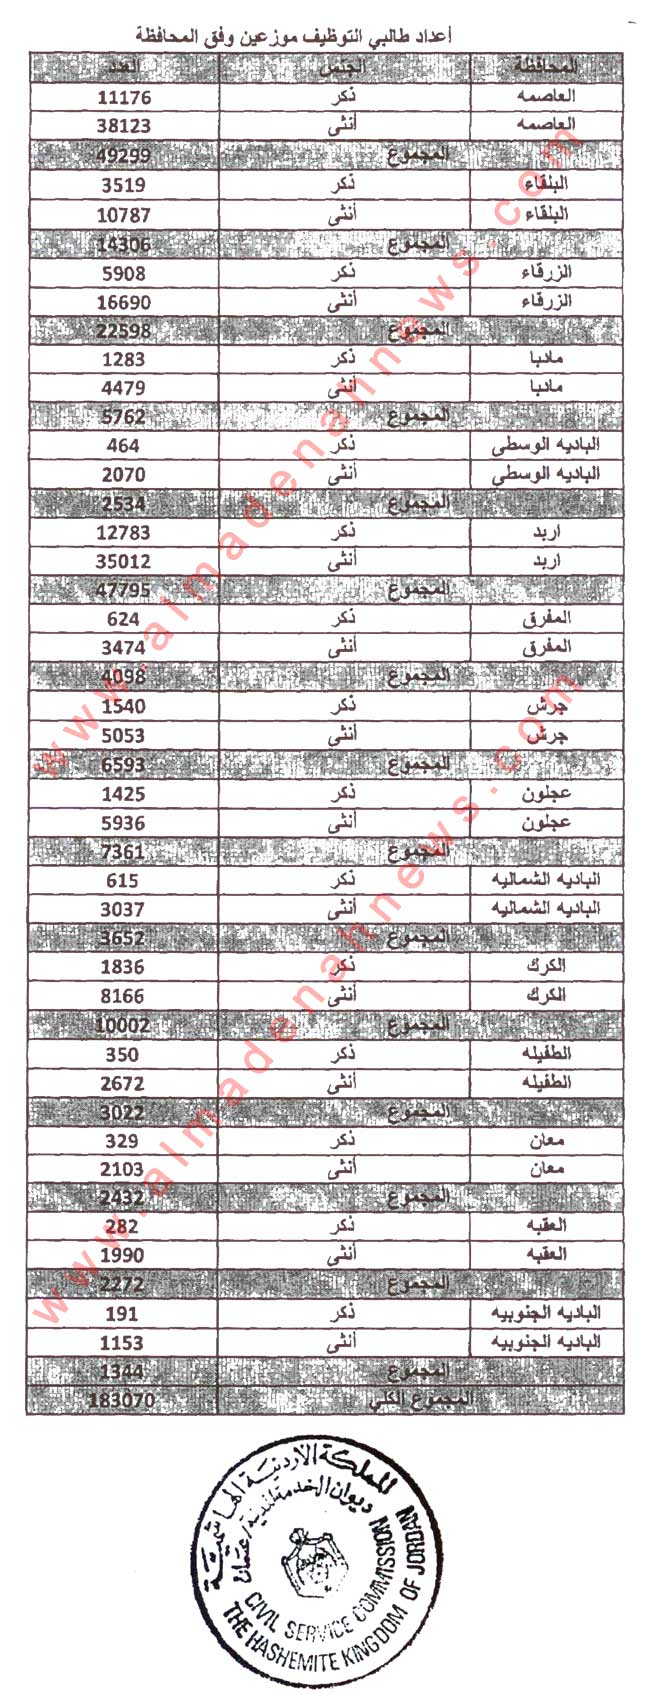 أعداد طالبي التوظيف موزعين وفق المحافظة
المحافظة الجنس العدد
العاصمه ذكر 11176
العاصمه أنثى 38123
المجموع 49299
البلقاء ذكر 3519
البلقاء أنثى 10787
المجموع 14306
الزرقاء ذكر 5908
الزرقاء أنثى 16690
المجموع 22598
مادبا ذكر 1283
مادبا أنثى 4479
المجموع 5762
الباديه الوسطى ذكر 464
الباديه الوسطى أنثى 2070
المجموع 2534
اربد ذكر 12783
اربد أنثى 35012
المجموع 47795
المفرق ذكر 624
المفرق أنثى 3474
المجموع 4098
جرش ذكر 1540
جرش أنثى 5053
المجموع 6593
عجلون ذكر 1425
عجلون أنثى 5936
المجموع 7361
الباديه الشماليه ذكر 615
الباديه الشماليه أنثى 3037
المجموع 3652
الكرك ذكر 1836
الكرك أنثى 8166
المجموع 10002
الطفيله ذكر 350
الطفيله أنثى 2672
المجموع 3022
معان ذكر 329
معان أنثى 2103
المجموع 2432
العقبه ذكر 282
العقبه أنثى 1990
المجموع 2272
الباديه الجنوبيه ذكر 191
الباديه الجنوبيه أنثى 1153
المجموع 1344
المجموع الكلي 183070
المملكة الاردنية الهاشمية
ديوان الخدمة المدنية / عمان
CIVIL SERVICE COMMISSION
THE HASHEMITE KINGDOM OF JORDAN
www.almadenahnews.com
www.almadenahnews.com